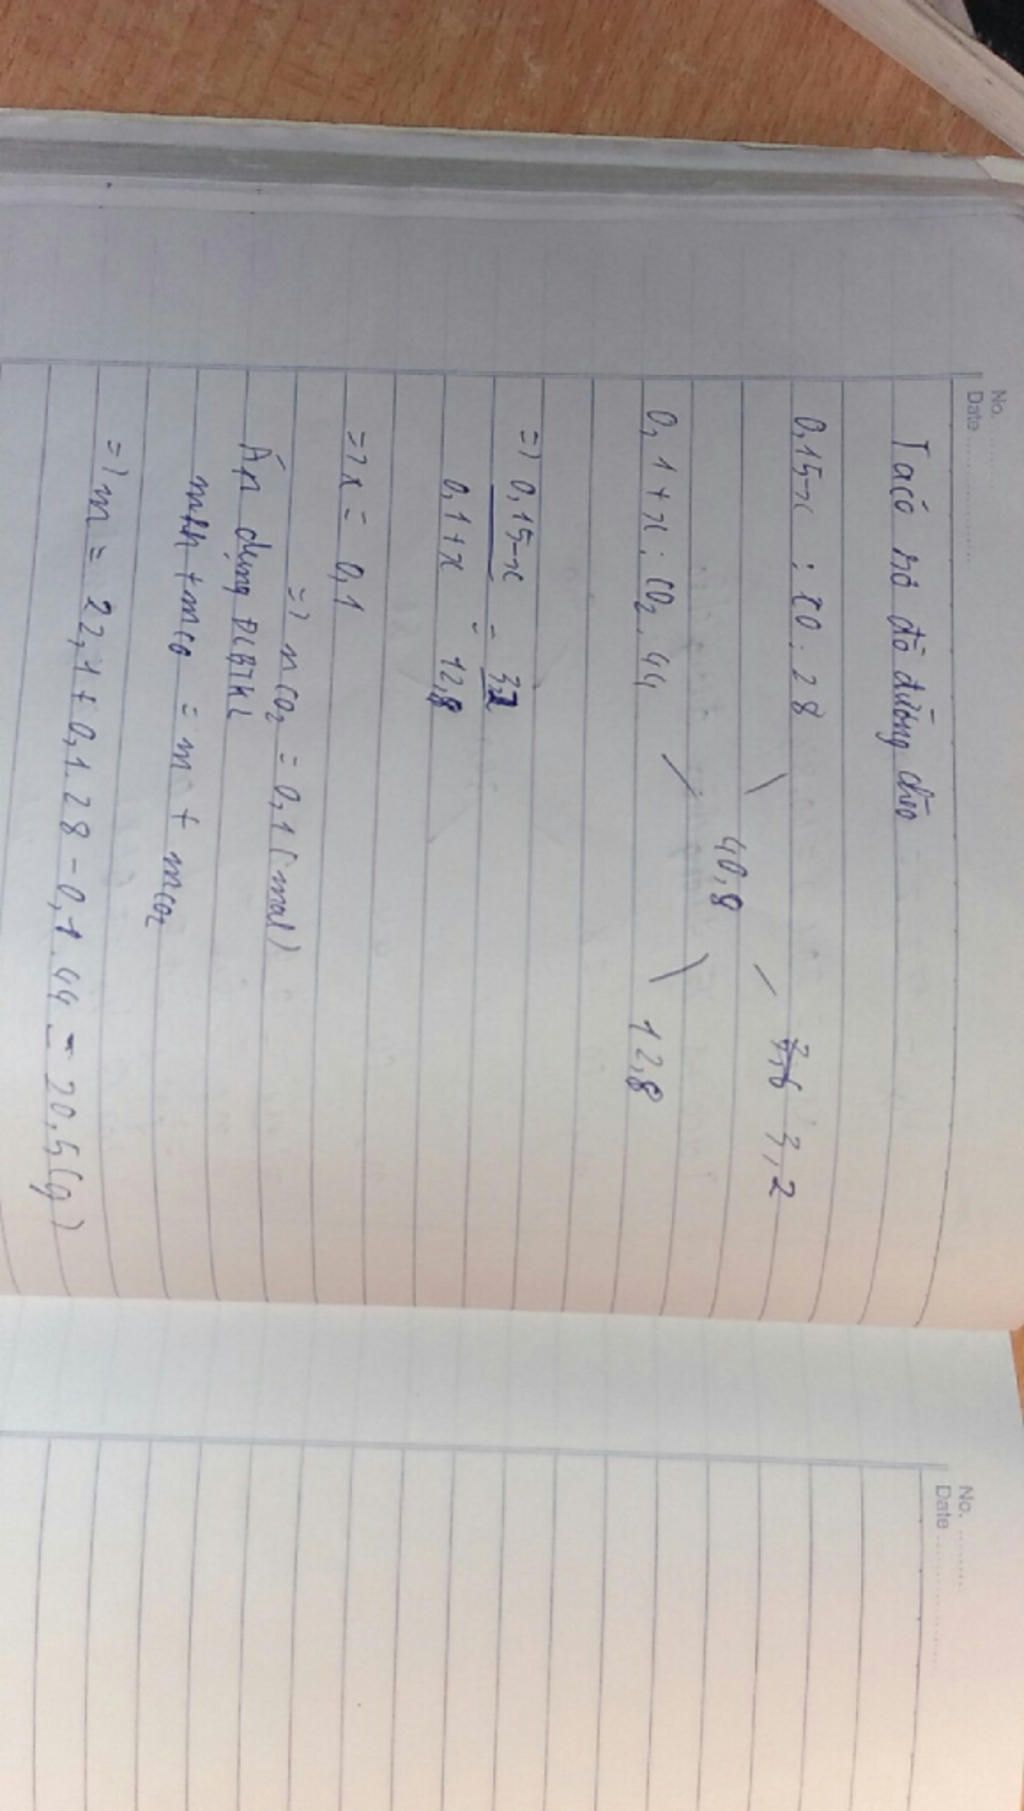 No. ..........
Date ....................
Ta có sơ đồ đường chéo
0,15-x : CO : 28 3,6 3,2
40,8
0,1+x : CO2 . 44 12,8
=> 0,15-x = 3,2
0,1+x 12,8
=> x = 0,1
=> nCO2 = 0,1 (mol)
Áp dụng ĐLBTKL
mhh + mCO = m + mCO2
=> m = 22,1 + 0,1.28 - 0,1.44 = 20,5(g)
No. ..........
Date ....................